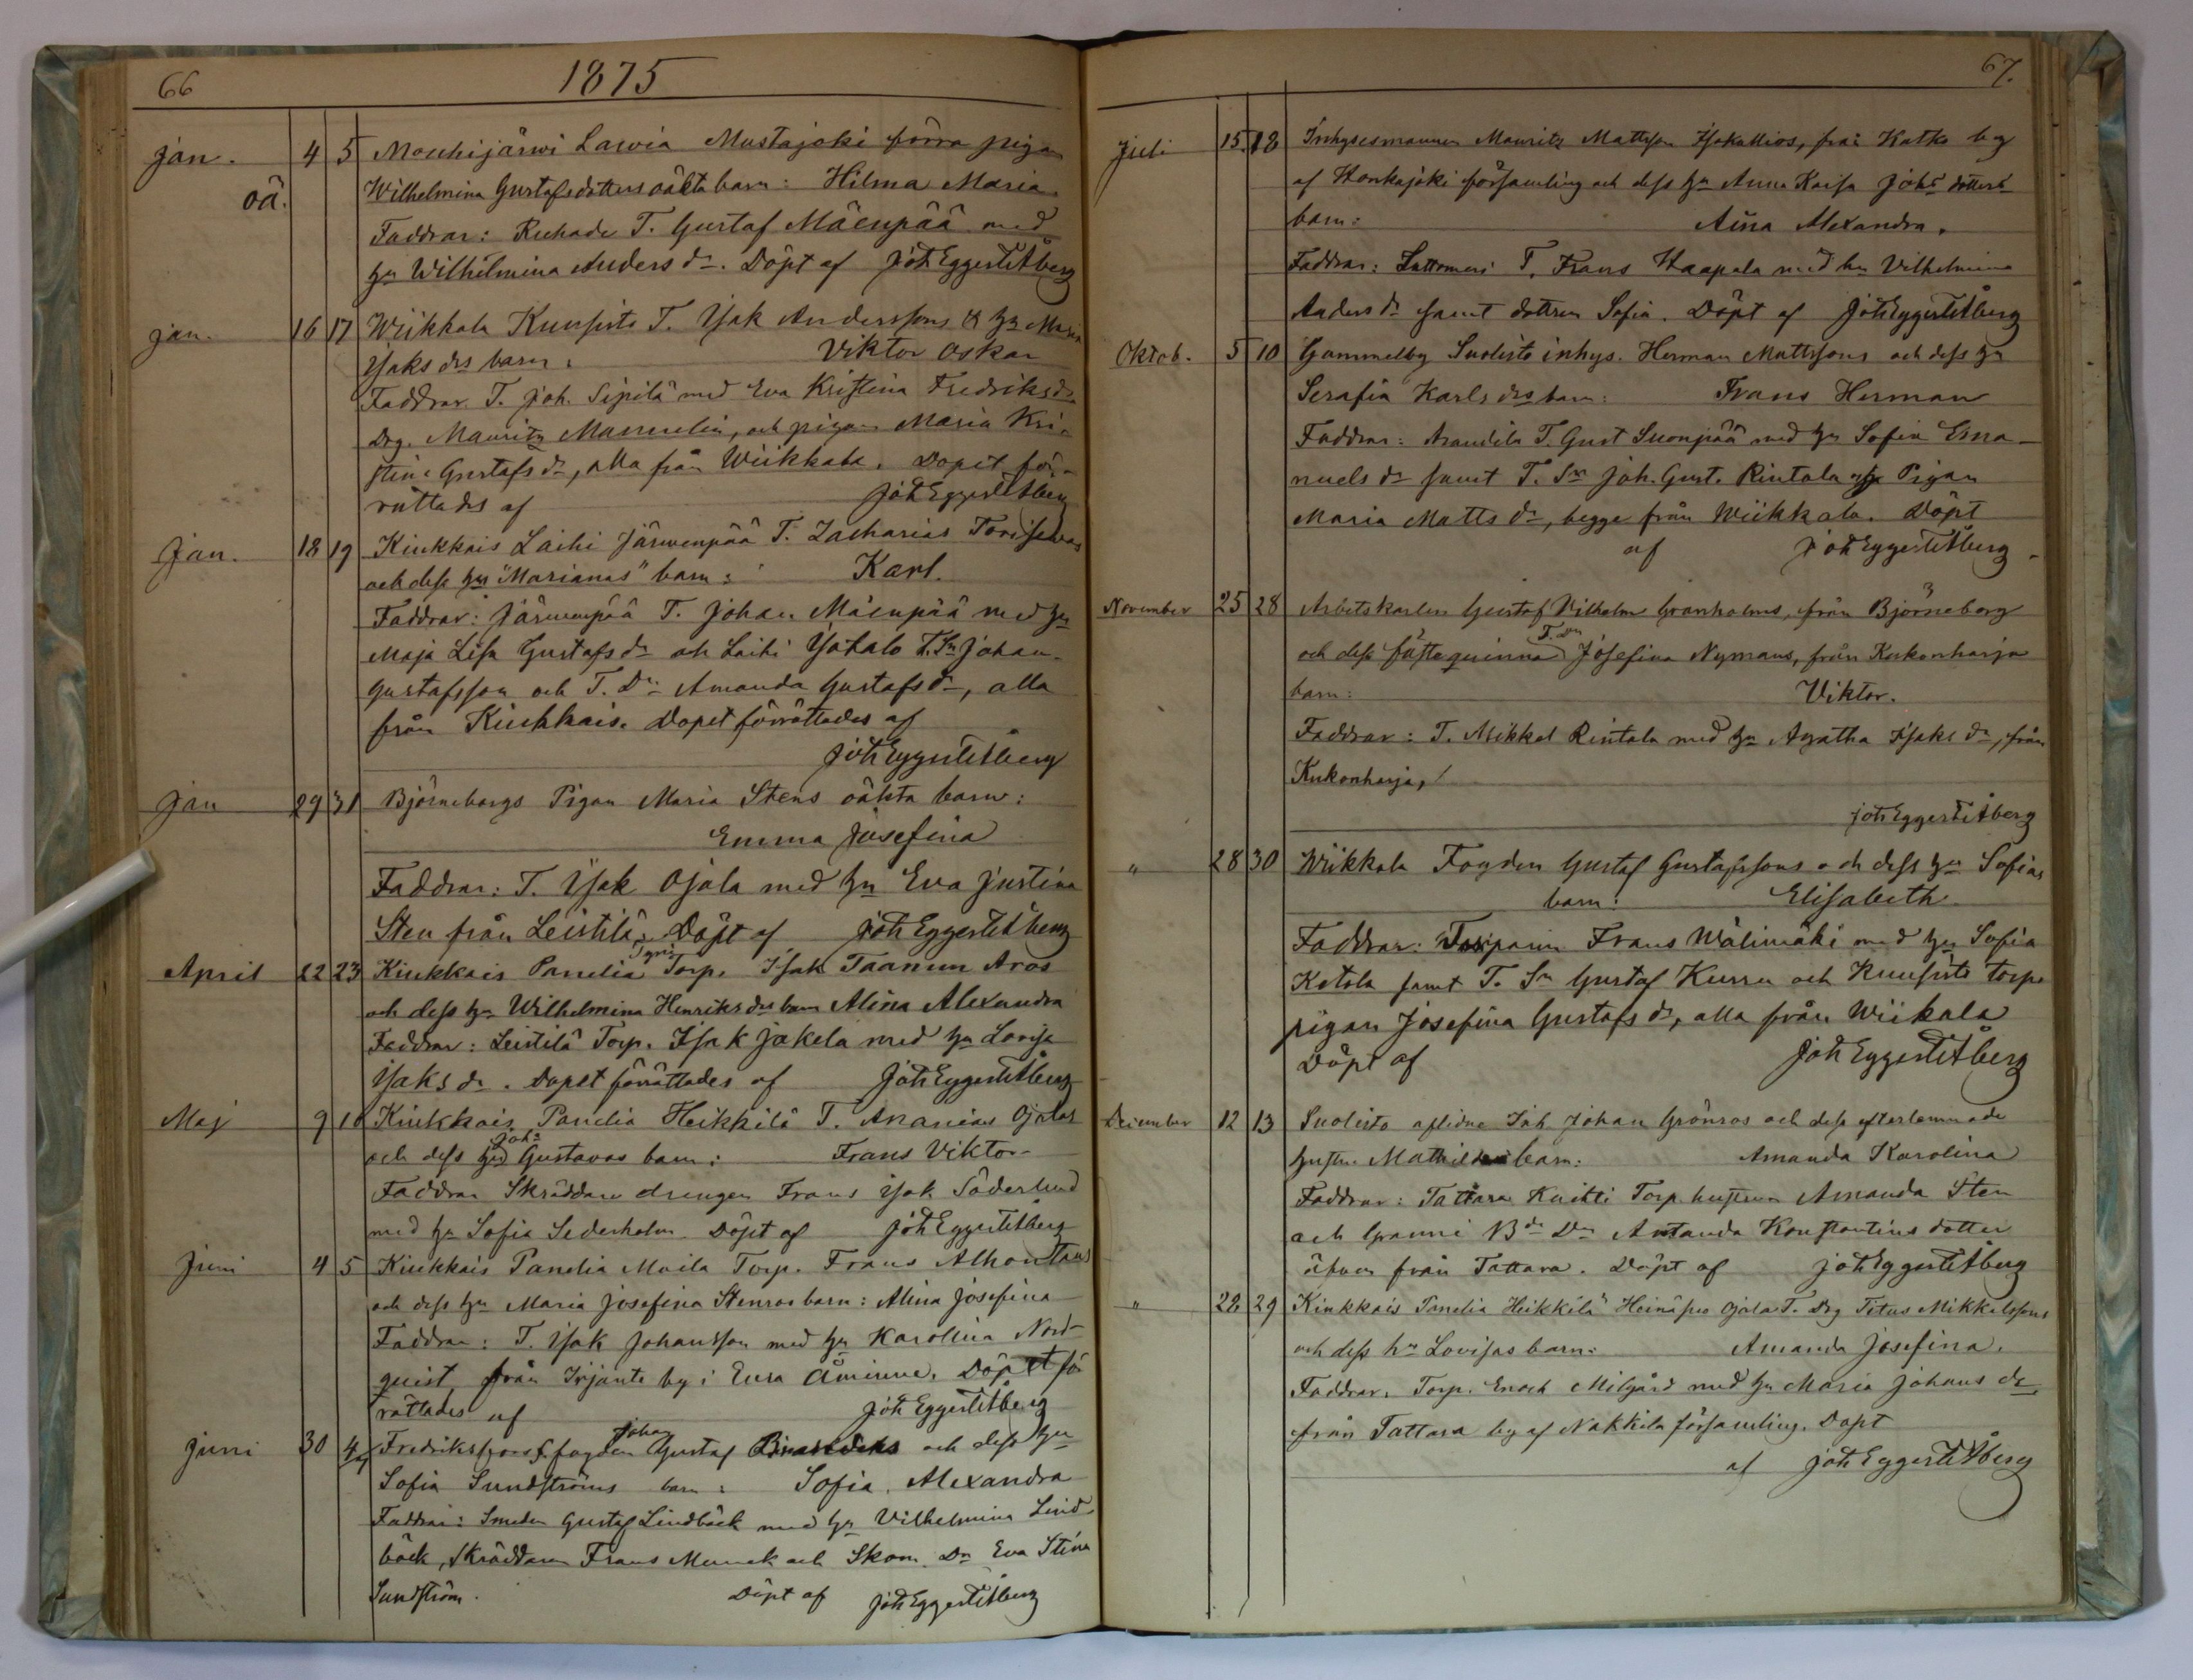 66
1875
Jan. 4 5 Mouhijärwi Lawia Mustajoki förra pigan
oä. Wilhelmina Gustafsdotters oäkta barn: Hilma Maria
Faddrar: Ruhade T. Gustaf Mäenpää med
hu Wilhelmina Anders dr. Döpt af Joh Eggert Åberg
Jan. 16 17 Wiikkala Kuusisto T. Isak Anderssons & hu Maria
Isaks drs barn: Viktor Oskar
Faddrar T. Joh. Sipilä med Eva Kristina Fredriksdr
Drg. Mauritz Mannelin, och pigan Maria Kri-
stina Gustafs dr, alla från Wiikkala. Dopet för-
rättades af Joh Eggert Åberg
Jan. 18 19 Kiukkais Laihi Järwenpää T. Zacharias
och dess hus "Marianas" barn: Karl.
Faddrar: Järwenpää T. Johan Mäenpää med hu
Maja Lisa Gustafs dr och Laihi Isotalo T. Sn Johan
Gustafsson och T. Dn Amanda Gustafs dr, alla
från Kiukkais. Dopet förrättades af
Joh Eggert Åberg
Jan 29 31 Björneborgs Pigan Maria Stens oäkta barn:
Emma Josefina
Faddrar: T. Isak Ojala med hu Eva Justina
Sten från Leistilä. Döpt af Joh Eggert Åberg
April 22 23 Kiukkais Panelia Torp. Isak Taanun Aros
och dess hu Wilhelmina Henriks drs barn Alina Alexandra
Faddrar: Leistilä Torp. Isak Jakela med hu Lovisa
Isaks dr. Dopet förrättades af Joh Eggert Åberg
Maj 9 10 Kiukkais Panelia Heikkilä T. Ananias Ojalas
och dess hus Gustavas barn: Frans Viktor
Faddrar Skräddare drengen Frans Isak Söderlund
med hu Sofia Sederholm. Döpt af Joh Eggert Åberg
Juni 4 5 Kiukkais Panelia Moila Torp. Frans Alhontaus
och dess hu Maria Josefina Stenros barn: Alina Josefina
Faddrar: T. Isak Johansson med hu Karolina Nord-
quist, från Irjante by i Eura Åminne. Döpet för
rättades af Joh Eggert Åberg
Juni 30 4/7 Fredriksfors f. fogden Johan Gustaf och dess hu
Sofia Sundströms barn: Sofia Alexandra
Faddrar: Smeden Gustaf Lindbäck med hu Vilhelmina Lind-
bäck, Skräddaren Frans Munck och Skom. Dn Eva Stina
Sundström. Döpt af Joh Eggert Åberg
67.
Juli 15 18 Inhysesmannen Mauritz Mattson Isokallios, från Katko by
af Honkajoki församling och dess hu Anna Kaisa Johs dotters
barn: Aina Alexandra.
Faddrar: Lattomeri T. Frans Haapala med hu Vilhelmina
Anders dr samt dottren Sofia. Döpt af Joh Eggert Åberg
Oktob. 5 10 Gammelby Suolisto inhys. Herman Mattssons och dess hu
Serafia Karls drs barn: Frans Herman
Faddrar: Arantila T. Gust Suonpää med hu Sofia Ema-
nuels dr samt T. Sn Joh. Gust. Rintala och Pigan
Maria Matts dr, begge från Wiikkala. Döpt
af Joh Eggert Åberg
November 25 28 Arbetskarlen Gustaf Vilhelm Granholms, från Björneborg
och dess fästequinna T. Dn Josefina Nymans, från Kukonharja
barn: Viktor.
Faddrar: T. Mikkel Rintala med hu Agatha Isaks dr, från
Kukonharja,
Joh Eggert Åberg
" 28 30 Wiikkala Fogden Gustaf Gustafssons och dess hu Sofias
barn: Elisabeth
Faddrar: Torparen Frans Wälimäki med hu Sofia
Ketola samt T. Sn Gustaf Kurru och Kuusisto torps
pigan Josefina Gustafs dr, alla från Wiikala
Döpt af Joh Eggert Åberg
December 12 13 Suolisto aflidne Inh Johan Grönros och dess efterlemnade
hustru Mathildas barn: Amanda Karolina
Faddrar: Tattara Kaitti Torp. hustrun Amanda Sten
och Granni Bde Dn Amanda Konstantins dotter
äfven från Tattara. Döpt af Joh Eggert Åberg
" 28 29 Kiukkais Panelia Heikkilä Heinäsuo Ojala T. Drg Titus Mikkelssons
och dess hu Lovisas barn: Amanda Josefina.
Faddrar. Torp. Enoch Milgård med hu Maria Johans dr,
från Tattara by af Nakkila församling. Döpt
af Joh Eggert Åberg